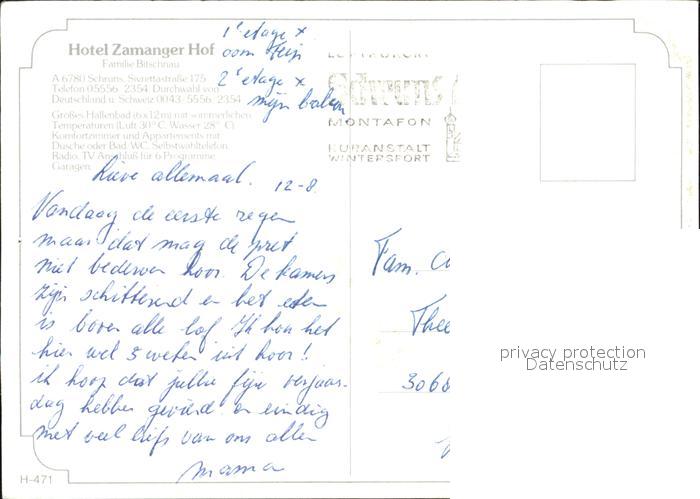 1e etage x
oom Frijs
2e etage x
mijn balkon
Hotel Zamanger Hof
Familie Bitschnau
A 6780 Schruns, Silvrettastraße 175
Telefon 05556 2354 Durchwahl von
Deutschland u. Schweiz 0043 5556 2354
Großes Hallenbad (6 x 12 m) mit sommerlichen
Temperaturen (Luft 30° C, Wasser 28° C).
Komfortzimmer und Appartements mit
Dusche oder Bad/WC. Selbstwahltelefon.
Radio, TV Anschluß für 6 Programme
Garagen.
LUFTKURORT
Schruns
MONTAFON
KURANSTALT
WINTERSPORT
Lieve allemaal. 12-8
Vandaag de eerste regen
maar dat mag de pret
niet bederven hoor. De kamers
zijn schitterend en het eten
is boven alle lof Ik hou het
hier wel 5 weken uit hoor!
ik hoop dat jullie fijn verjaar-
dag hebben gevierd en eindig
met veel liefs van ons allen
mama
Fam.
Thee
3068
privacy protection
Datenschutz
H-471